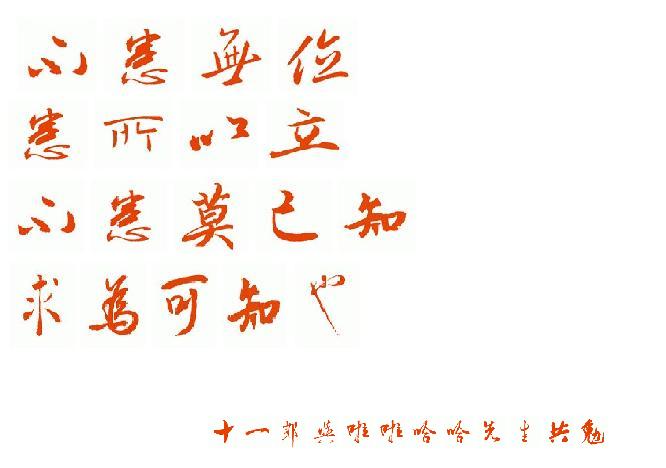 不患無位
患所以立
不患莫己知
求為可知也
十一郎與啦啦哈哈先生共勉